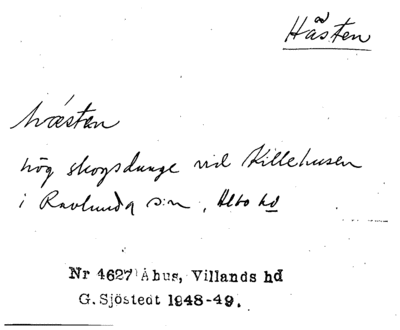 Håsten
hög skogsdunge vid Killehusen
i Ravlunda s:n, Albo hd
Nr 4627 Åhus, Villands hd
G. Sjöstedt 1948-49.